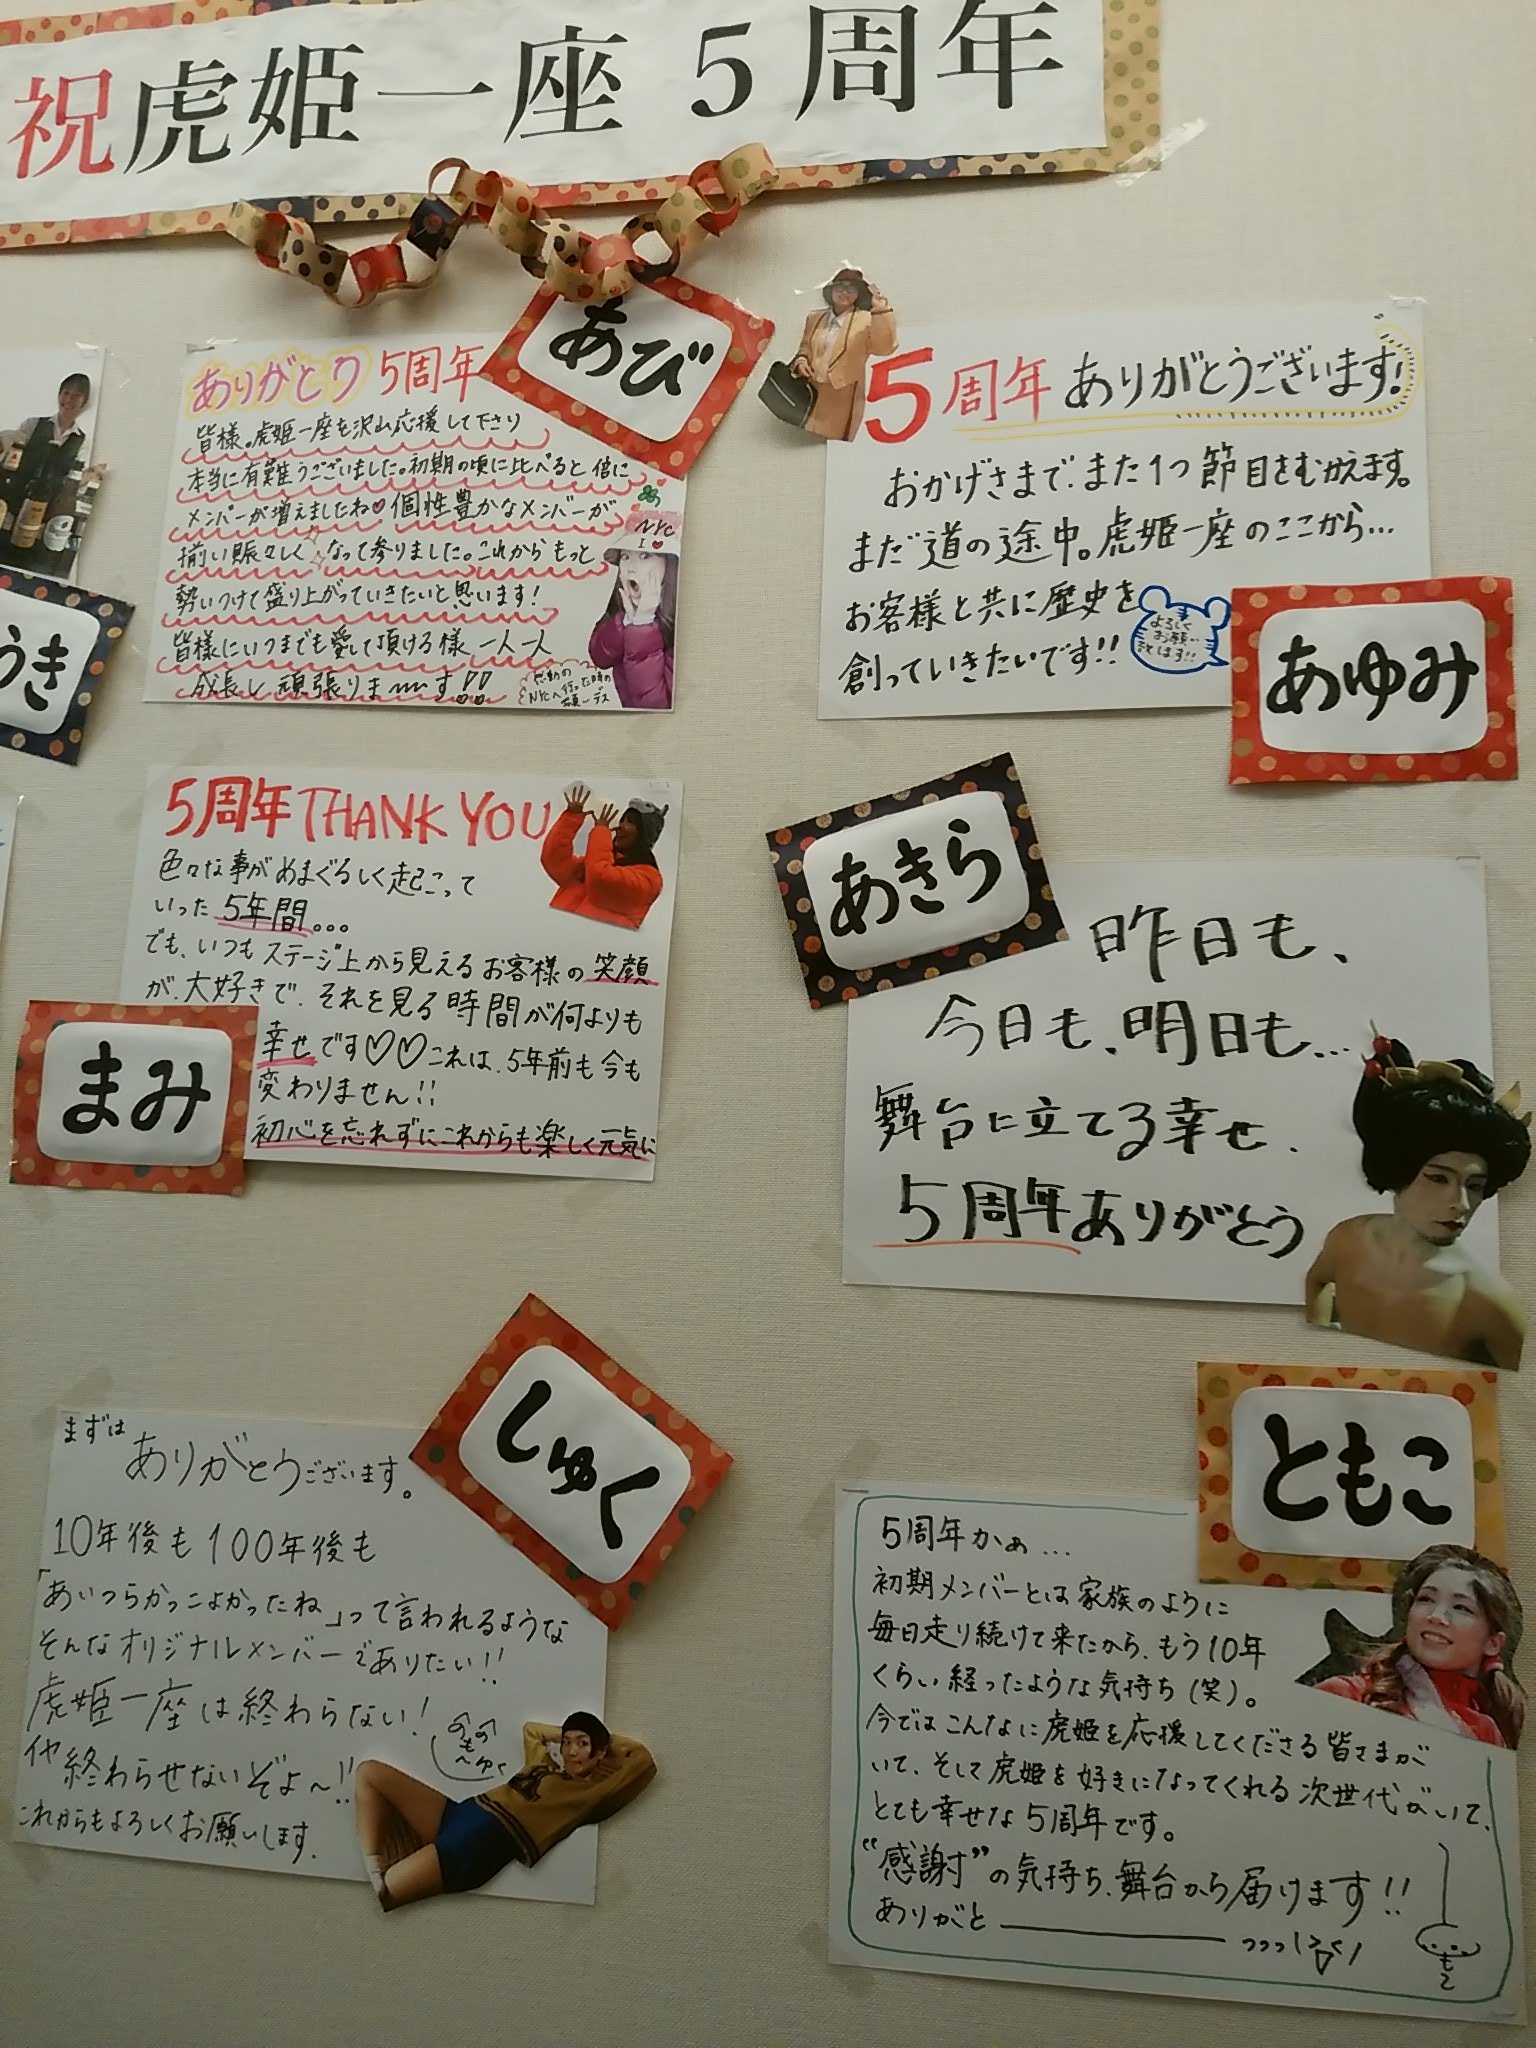 祝虎姫一座 5周年
あび
ありがとう 5周年
皆様。虎姫一座を沢山応援して下さり
本当に有難うございました。初期の頃に比べると倍に
メンバーが増えましたね♥個性豊かなメンバーが
揃い賑々しくなって参りました。これからもっと
勢いつけて盛り上がっていきたいと思います!
皆様にいつまでも愛して頂ける様、一人一人
成長し頑張りま〰す!!
NYC
I ♥
感動の
NYCへ行った時の
顔…デス
5周年ありがとうございます!
おかげさまで、また1つ節目をむかえます。
まだ道の途中。虎姫一座のここから…
お客様と共に歴史を
創っていきたいです!!
よろしく
お願い…
あゆみ
うき
5周年THANK YOU
色々な事がめまぐるしく起こって
いった5年間。。。
でも、いつもステージ上から見えるお客様の笑顔
が、大好きで、それを見る時間が何よりも
幸せです♡♡これは、5年前も今も
変わりません!!
初心を忘れずにこれからも楽しく元気に
まみ
あきら
昨日も、
今日も、明日も…
舞台に立てる幸せ、
5周年ありがとう
しゅく
まずは
ありがとうございます。
10年後も100年後も
「あいつらかっこよかったね」って言われるような
そんなオリジナルメンバーでありたい!!
虎姫一座は終わらない!
イヤ終わらせないぞよ〜!!
これからもよろしくお願いします。
ともこ
5周年かぁ…
初期メンバーとは家族のように
毎日走り続けて来たから、もう10年
くらい経ったような気持ち(笑)。
今ではこんなに虎姫を応援してくださる皆さまが
いて、そして虎姫を好きになってくれる次世代がいて、
とても幸せな5周年です。
"感謝"の気持ち、舞台から届けます!!
ありがと